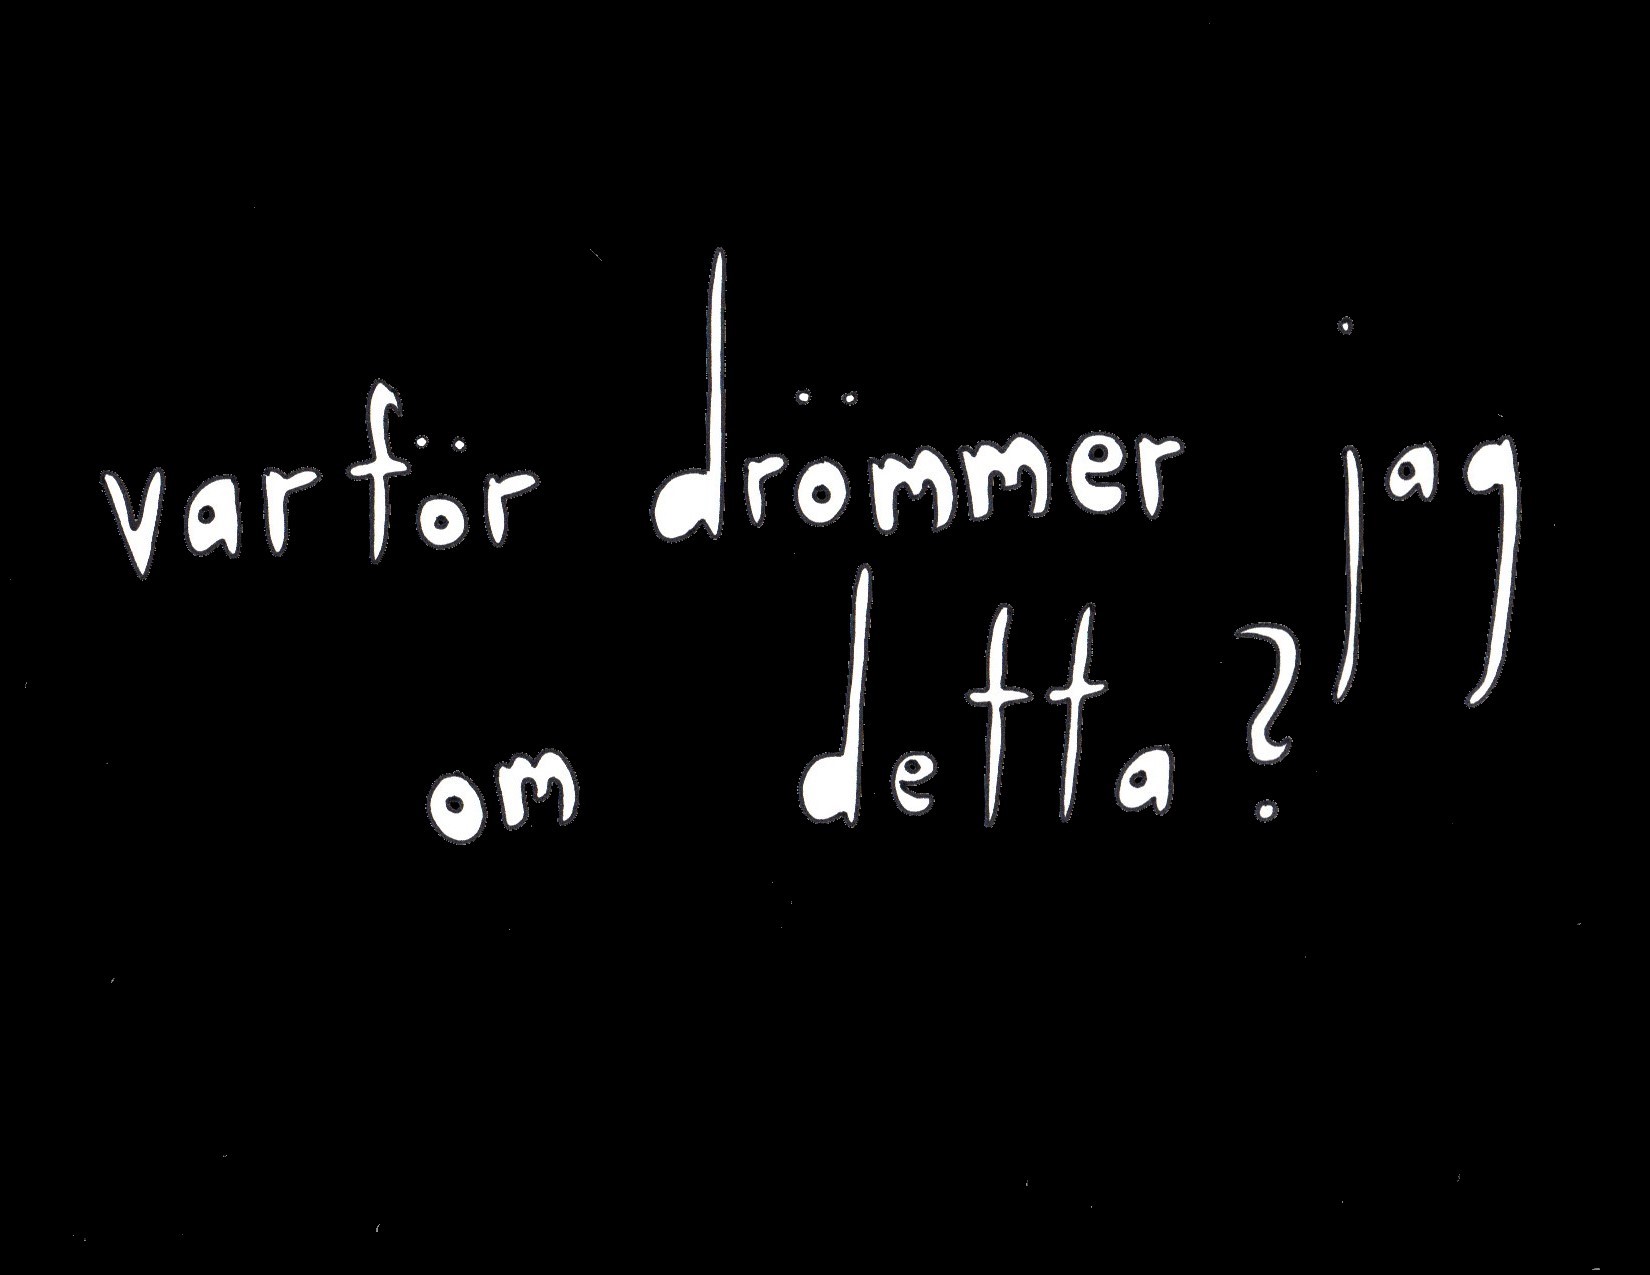 varför drömmer jag
om detta?